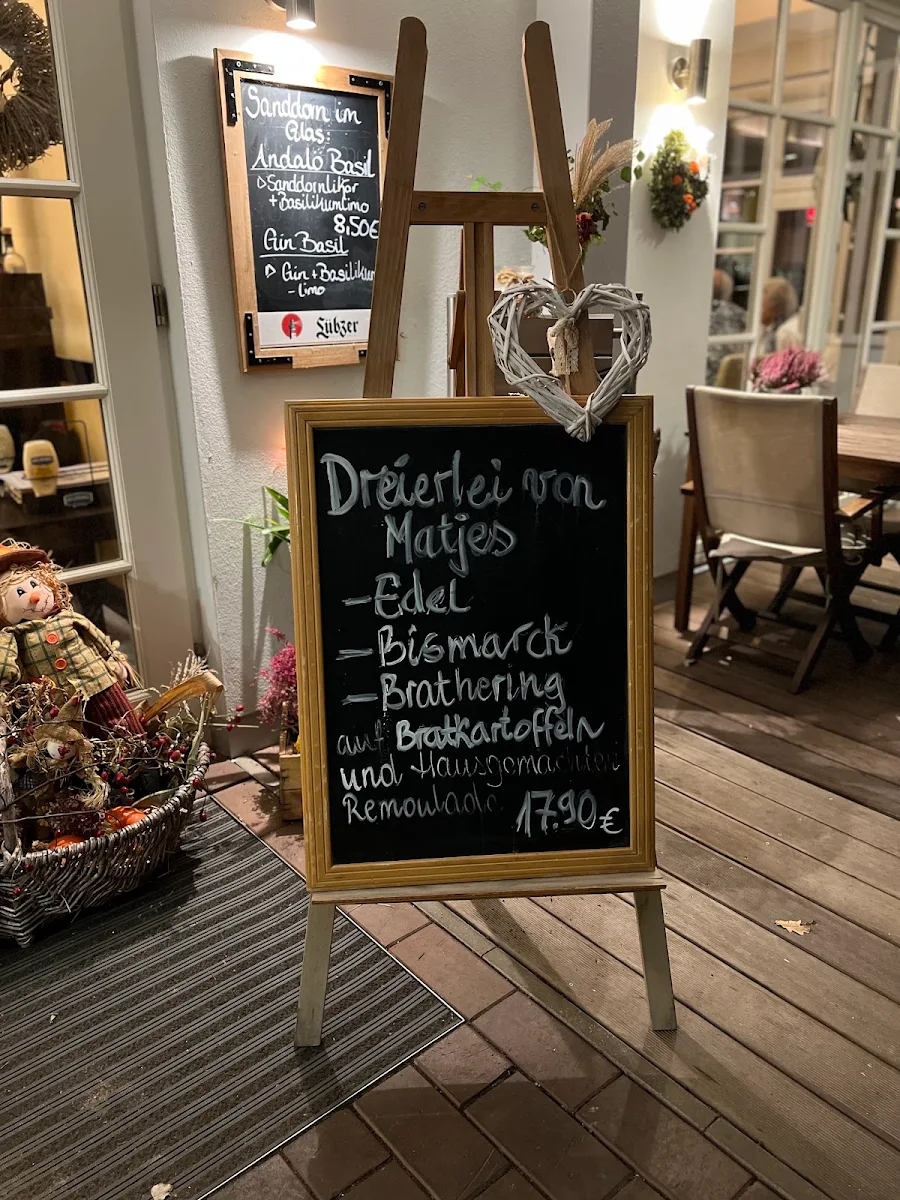 Sanddorn im
Glas:
Andalö Basil
▷Sanddornlikör
+Basilikumlimo
8,50€
Gin Basil
▷ Gin+Basilikum
-limo
Lübzer
Dreierlei von
Matjes
-Edel
-Bismarck
-Brathering
auf Bratkartoffeln
und Hausgemachten
Remoulade 17.90€